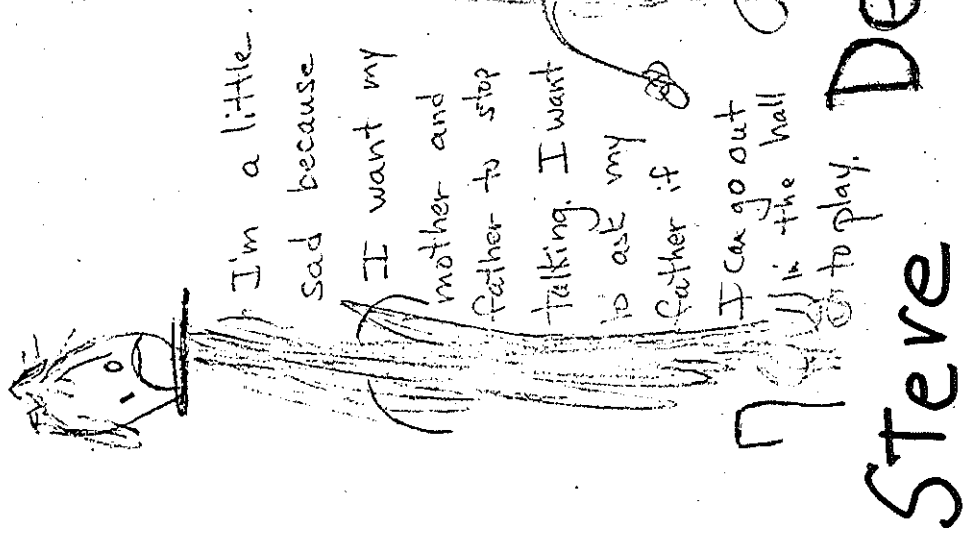 I'm a little
sad because
I want my
mother and
father to stop
talking. I want
to ask my
father if
I can go out
in the hall
to play.
Steve De